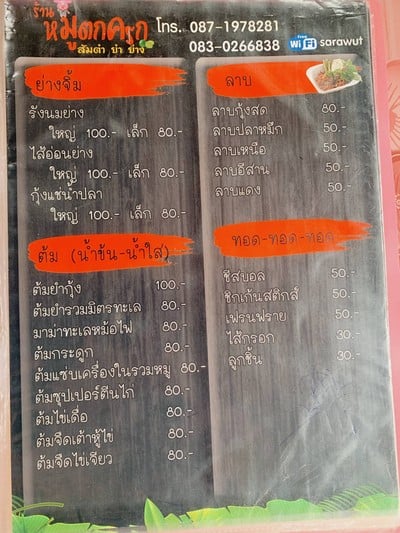 ร้าน
หมูตกครก
ส้มตำ ยำ ย่าง
โทร. 087-1978281
083-0266838
Free
WiFi sarawut
ย่างจิ้ม
รังนมย่าง
ใหญ่ 100.- เล็ก 80.-
ไส้อ่อนย่าง
ใหญ่ 100.- เล็ก 80.-
กุ้งแช่น้ำปลา
ใหญ่ 100.- เล็ก 80.-
ต้ม (น้ำข้น-น้ำใส)
ต้มยำกุ้ง 100.-
ต้มยำรวมมิตรทะเล 80.-
มาม่าทะเลหม้อไฟ 80.-
ต้มกระดูก 80.-
ต้มแซ่บเครื่องในรวมหมู 80.-
ต้มซุปเปอร์ตีนไก่ 80.-
ต้มไข่เดื่อ 80.-
ต้มจืดเต้าหู้ไข่ 80.-
ต้มจืดไข่เจียว 80.-
ลาบ
ลาบกุ้งสด 80.-
ลาบปลาหมึก 50.-
ลาบเหนือ 50.-
ลาบอีสาน 50.-
ลาบแดง 50.-
ทอด-ทอด-ทอด
ชีสบอล 50.-
ชิกเก้นสติกส์ 50.-
เฟรนฟราย 50.-
ไส้กรอก 30.-
ลูกชิ้น 30.-